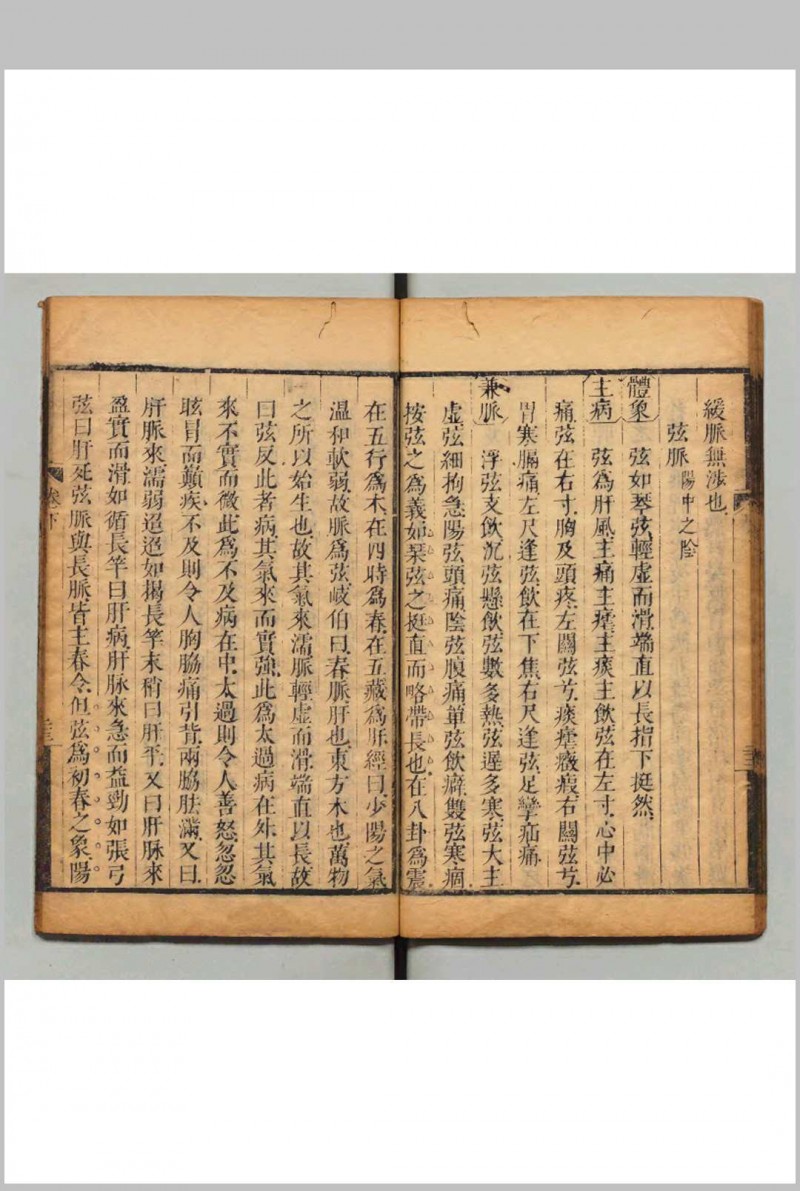 緩脈無渉也
弦脈 陽中之陰
體象 弦如琴弦輕虛而滑端直以長指下挺然
主病 弦爲肝風主痛主瘧主痰主飲弦在左寸心中必
痛弦在右寸胸及頭疼左關弦兮痰瘧癥瘕右關弦兮
胃寒膈痛左尺逢弦飲在下焦右尺逢弦足攣疝痛
兼脈 浮弦支飲沉弦懸飲弦數多熱弦遲多寒弦大主
虛弦細拘急陽弦頭痛陰弦腹痛單弦飲癖雙弦寒痼
按弦之爲義如琹弦之挺直而略帶長也在八卦爲震
在五行爲木在四時爲春在五藏爲肝經曰少陽之氣
溫和軟弱故脈爲弦岐伯曰春脈肝也東方木也萬物
之所以始生也故其氣來濡脈輕虛而滑端直以長故
曰弦反此者病其氣來而實強此爲太過病在外其氣
來不實而微此爲不及病在中太過則令人善怒忽忽
眩冒而巔疾不及則令人胸脇痛引背兩脇胠滿又曰
肝脈來濡弱迢迢如揭長竿末稍曰肝平又曰肝脉來
盈實而滑如循長竿曰肝病肝脉來急而益勁如張弓
弦曰肝死弦脈與長脈皆主春令但弦爲初春之象陽
卷下